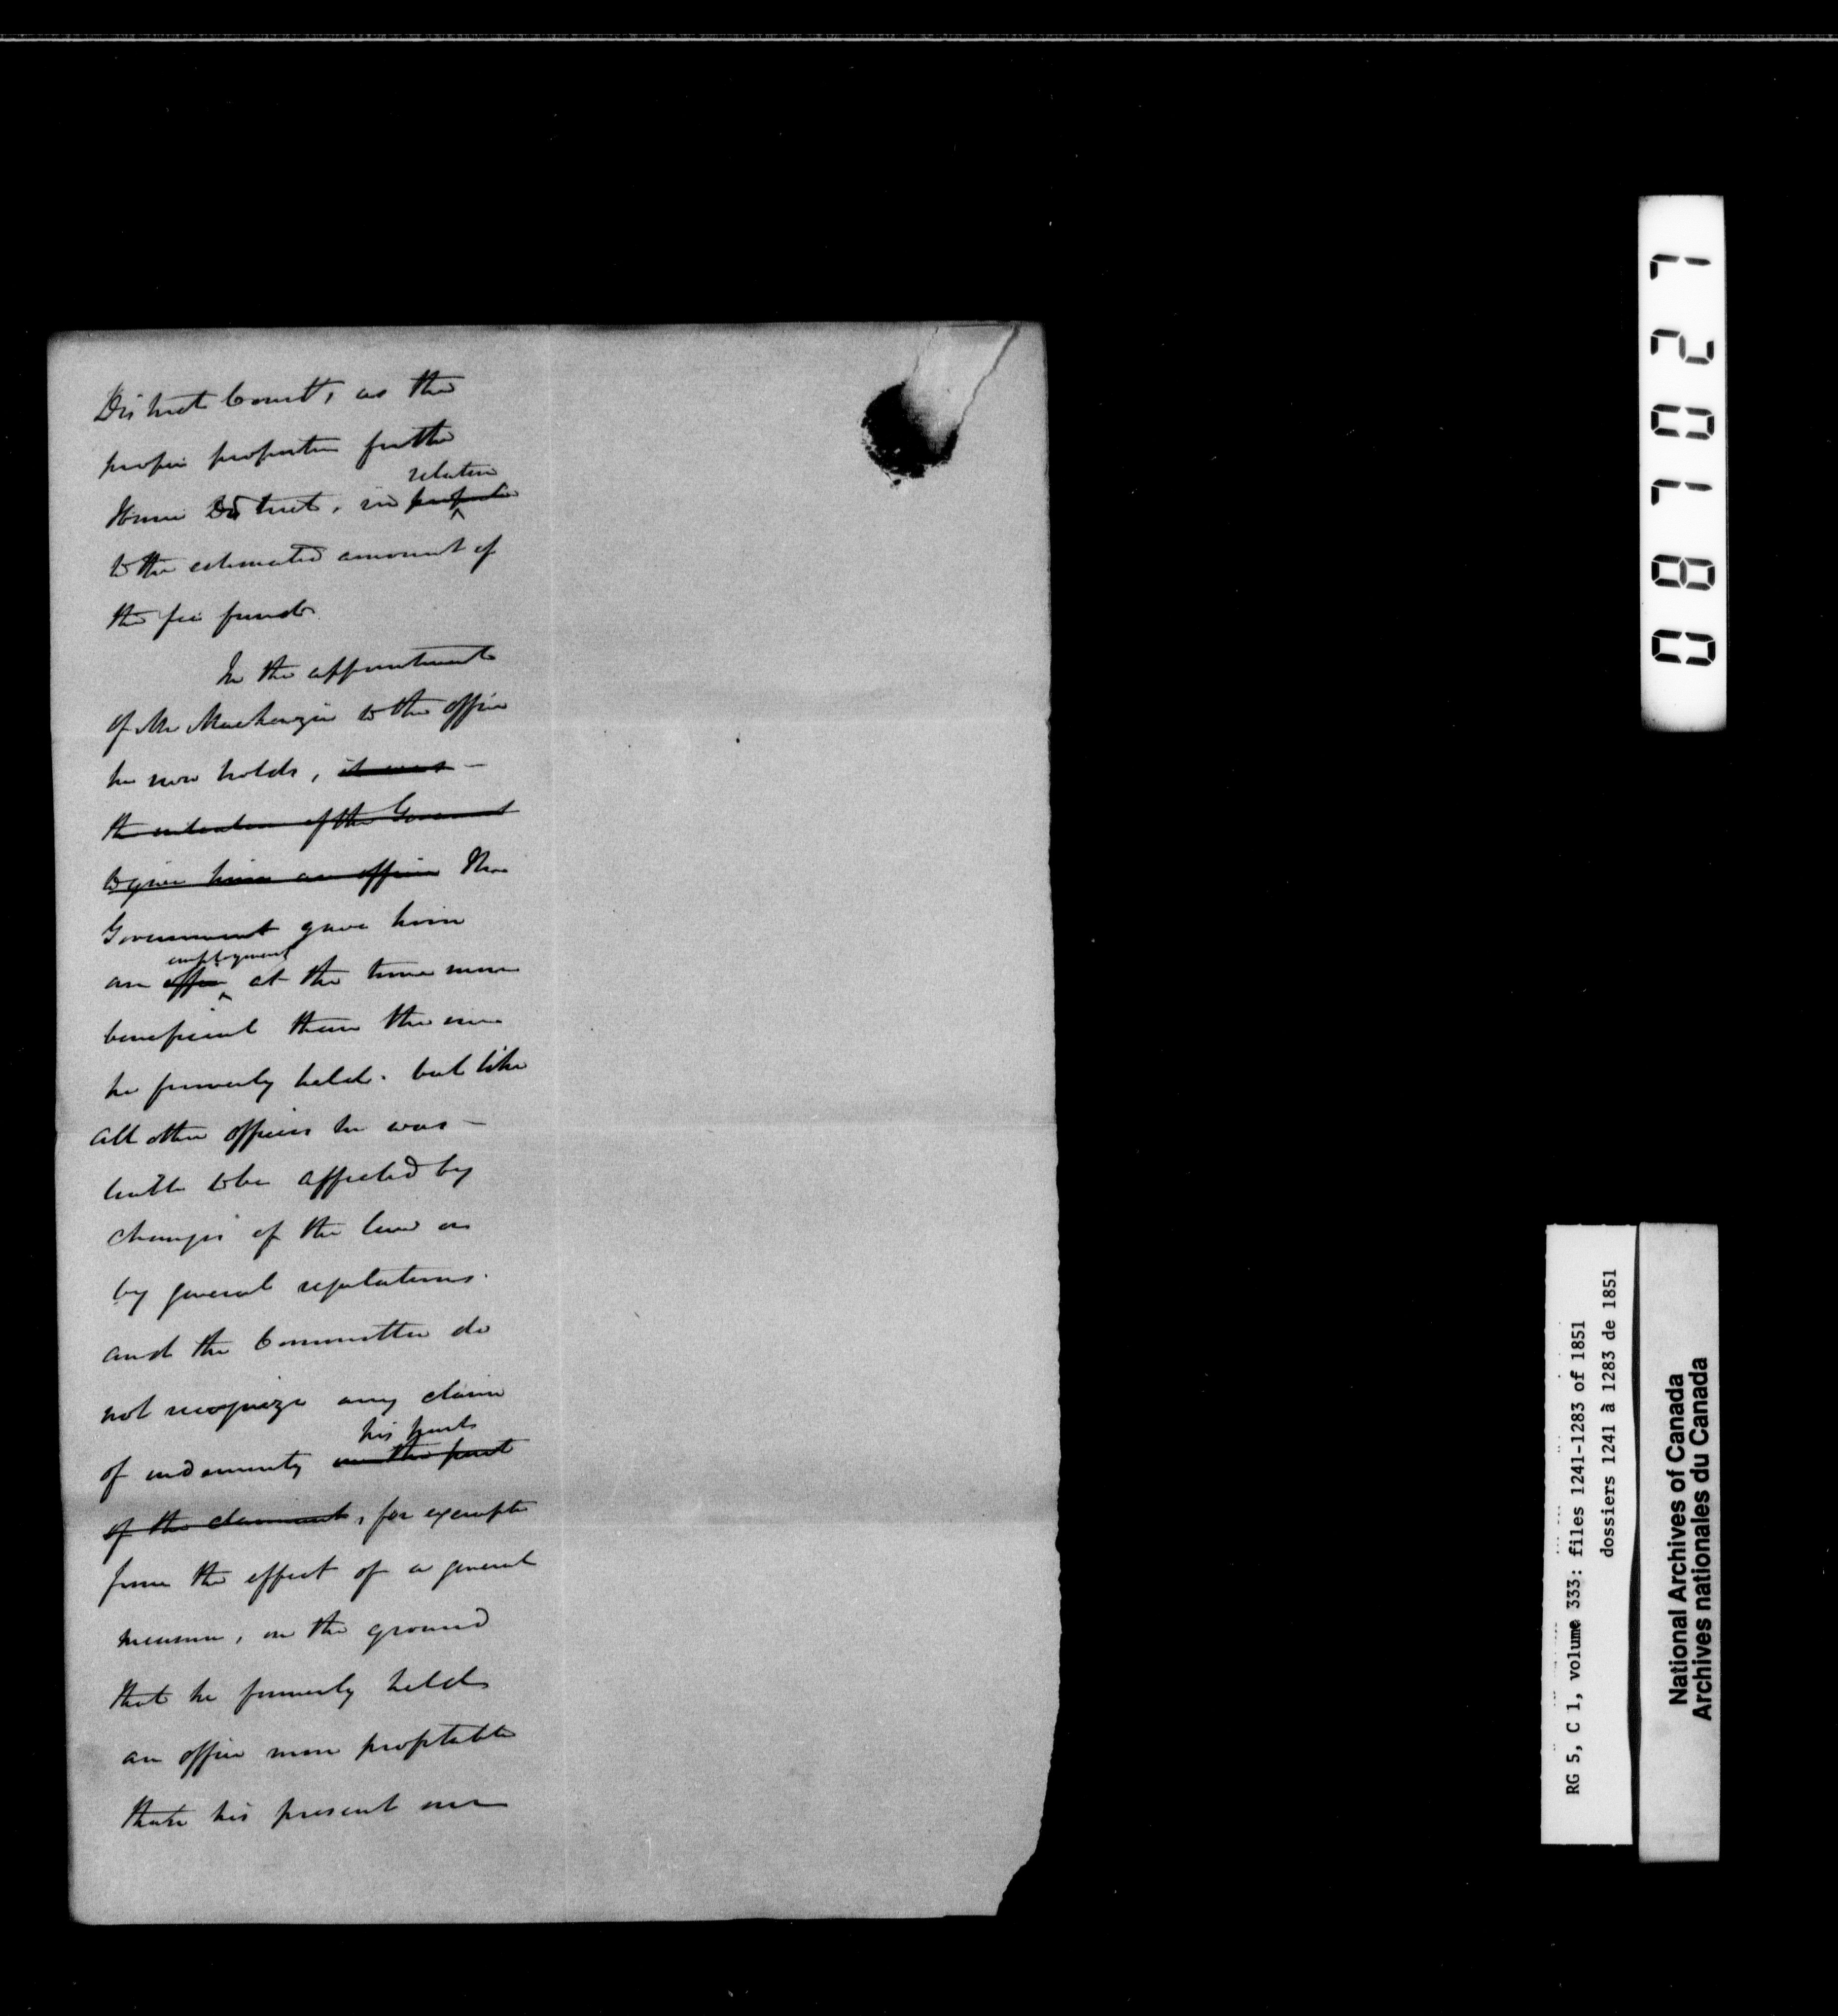 District Court, as the
proper proportion for the
relation
Home District, in proportion
to the estimated amount of
the fee fund.
In the appointment
of Mr Mackenzie to the office
he now holds, it was —
the intention of the Government
to give him an office The
Government gave him
employment
an office at the time more
beneficial than the one
he formerly held. but like
all other officers he was —
liable to be affected by
changes of the law or
by general regulations.
and the Committee do
not recognize any claim
his part
of indemnity on the part
of the claimant, for exempts
from the effect of a general
measure, on the ground
that he formerly held
an office more profitable
than his present one
0 8 7 0 2 7
RG 5, C 1, volume 333: files 1241-1283 of 1851
dossiers 1241 à 1283 de 1851
National Archives of Canada
Archives nationales du Canada